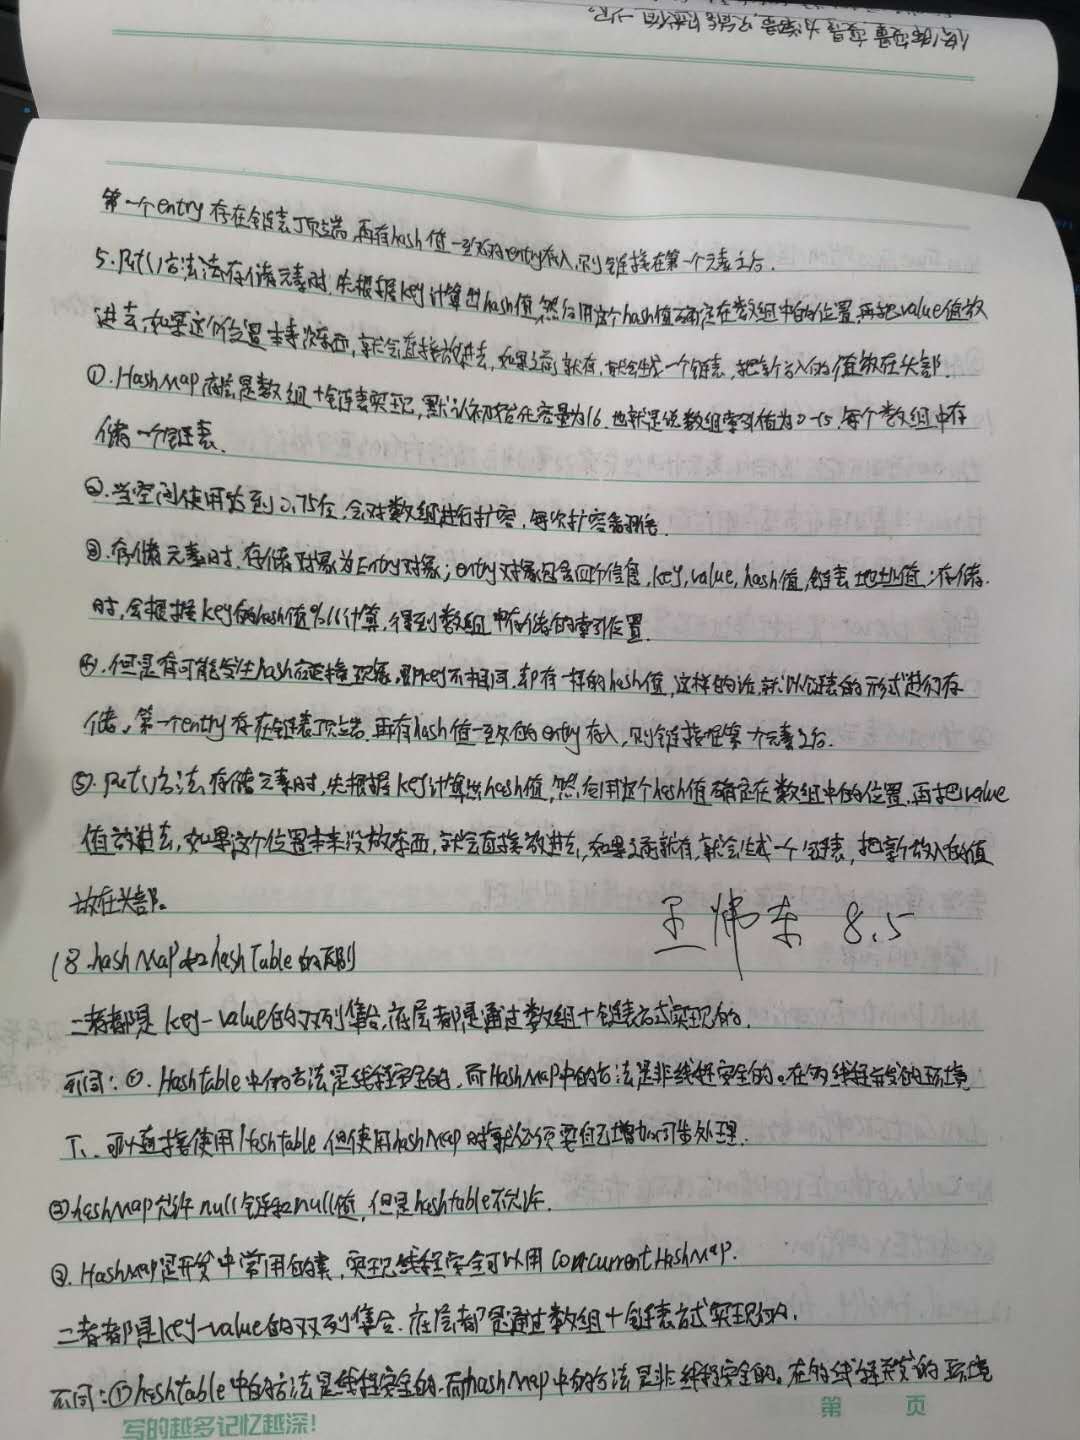 第一个entry存在链表顶端,再有hash值一致的entry存入,则链接在第一个元素之后.
5.put()方法法存储元素时,先根据key计算出hash值,然后用这个hash值确定在数组中的位置,再把value值放
进去,如果这个位置本来没东西,就会直接放进去,如果之前就有,就会生成一个链表,把新放入的值放在头部.
①.HashMap底层是数组+链表实现,默认初始化容量为16.也就是说数组索引值为0-15.每个数组中存
储一个链表.
②.当空间使用达到0.75倍,会对数组进行扩容,每次扩容翻倍.
③.存储元素时,存储对象为Entry对象;entry对象包含四个信息,key,value,hash值,链表地址值;存储.
时,会根据key的hash值%16计算,得到数组中存储的索引位置.
④.但是有可能发生hash碰撞现象,即key不相同,却有一样的hash值,这样的话,就以链表的形式进行存
储。第一个entry存在链表顶端.再有hash值一致的entry存入,则链接在第一个元素之后.
⑤.put()方法,存储元素时,先根据key计算出hash值,然后用这个hash值确定在数组中的位置.再把value
值放进去,如果这个位置本来没放东西,就会直接放进去,如果之前就有,就会生成一个链表,把新放入的值
放在头部。
王 东 8.5
18.hashMap和hashTable的区别
二者都是key-value的双列集合,底层都是通过数组+链表方式实现的.
不同:①.Hashtable中的方法是线程安全的,而HashMap中的方法是非线程安全的。在多线程并发的环境
下、可以直接使用Hashtable,但使用hashMap时就必须要自己增加同步处理.
②hashMap允许null键和null值,但是hashtable不允许.
③.HashMap是开发中常用的类,实现线程安全可以用concurrentHashMap.
二者都是key-value的双列集合.底层都是通过数组+链表方式实现的.
不同:①hashtable中的方法是线程安全的,而hashMap中的方法是非线程安全的。在多线程并发的环境
写的越多记忆越深!
第 页